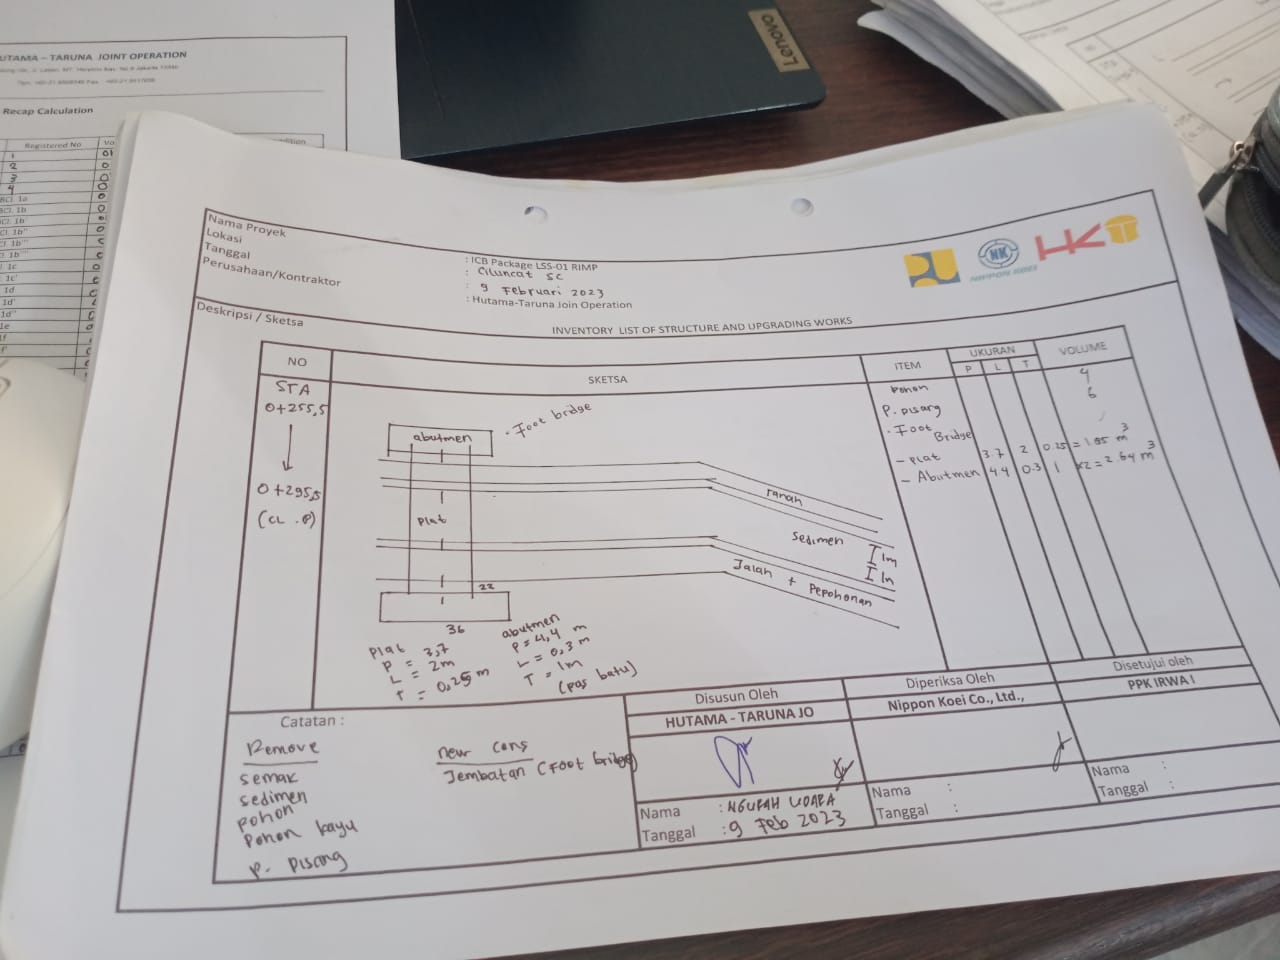 Lenovo
HUTAMA – TARUNA JOINT OPERATION
Recap Calculation
Registered No
1
2
3
4
1b
1c
1d
Nama Proyek : ICB Package LSS-01 RIMP
Lokasi : Ciluncat SC
Tanggal : 9 Februari 2023
Perusahaan/Kontraktor : Hutama-Taruna Join Operation
NIPPON KOEI
Deskripsi / Sketsa
INVENTORY LIST OF STRUCTURE AND UPGRADING WORKS
NO SKETSA ITEM UKURAN VOLUME
P L T
STA
0+255,5
0+295,5
(CL .P)
abutmen
. Foot bridge
plat
Tanah
Sedimen
1m
1m
Jalan + Pepohonan
22
36
plat
P = 3,7
L = 2m
T = 0,25 m
abutmen
P = 4,4 m
L = 0,3 m
T = 1m
(pas batu)
Pohon 4
P. pisang 6
. Foot Bridge
- plat 3.7 2 0.25 = 1.85 m3
- Abutmen 4.4 0.3 1 x2 = 2.64 m3
Catatan :
Remove
semak
sedimen
pohon
Pohon kayu
P. Pisang
new cons
Jembatan (Foot bridge)
Disusun Oleh
HUTAMA - TARUNA JO
Nama : NGURAH
Tanggal : 9 Feb 2023
Diperiksa Oleh
Nippon Koei Co., Ltd.,
Nama :
Tanggal :
Disetujui oleh
PPK IRWA I
Nama :
Tanggal :